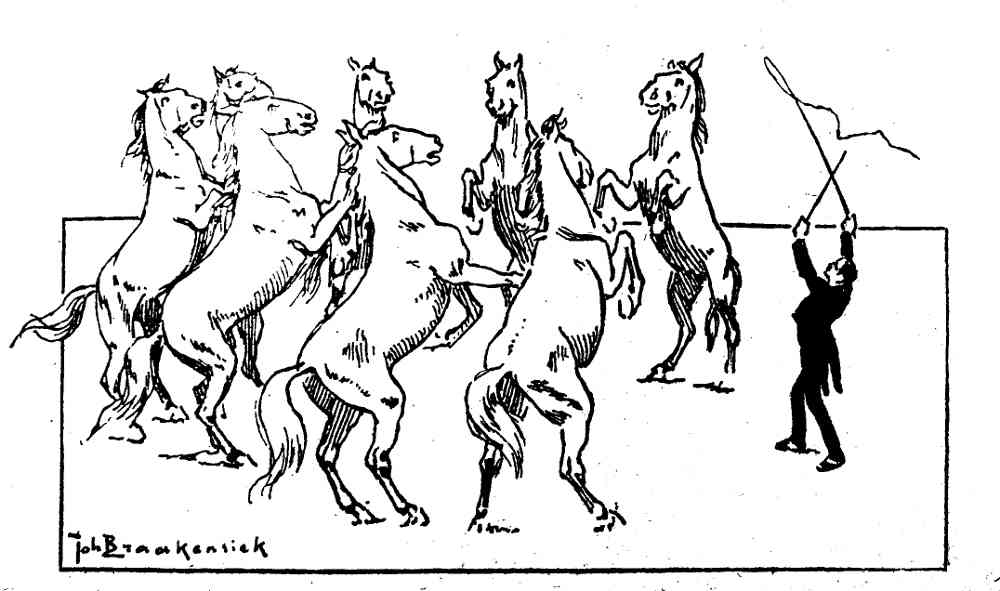 Joh Braakensiek